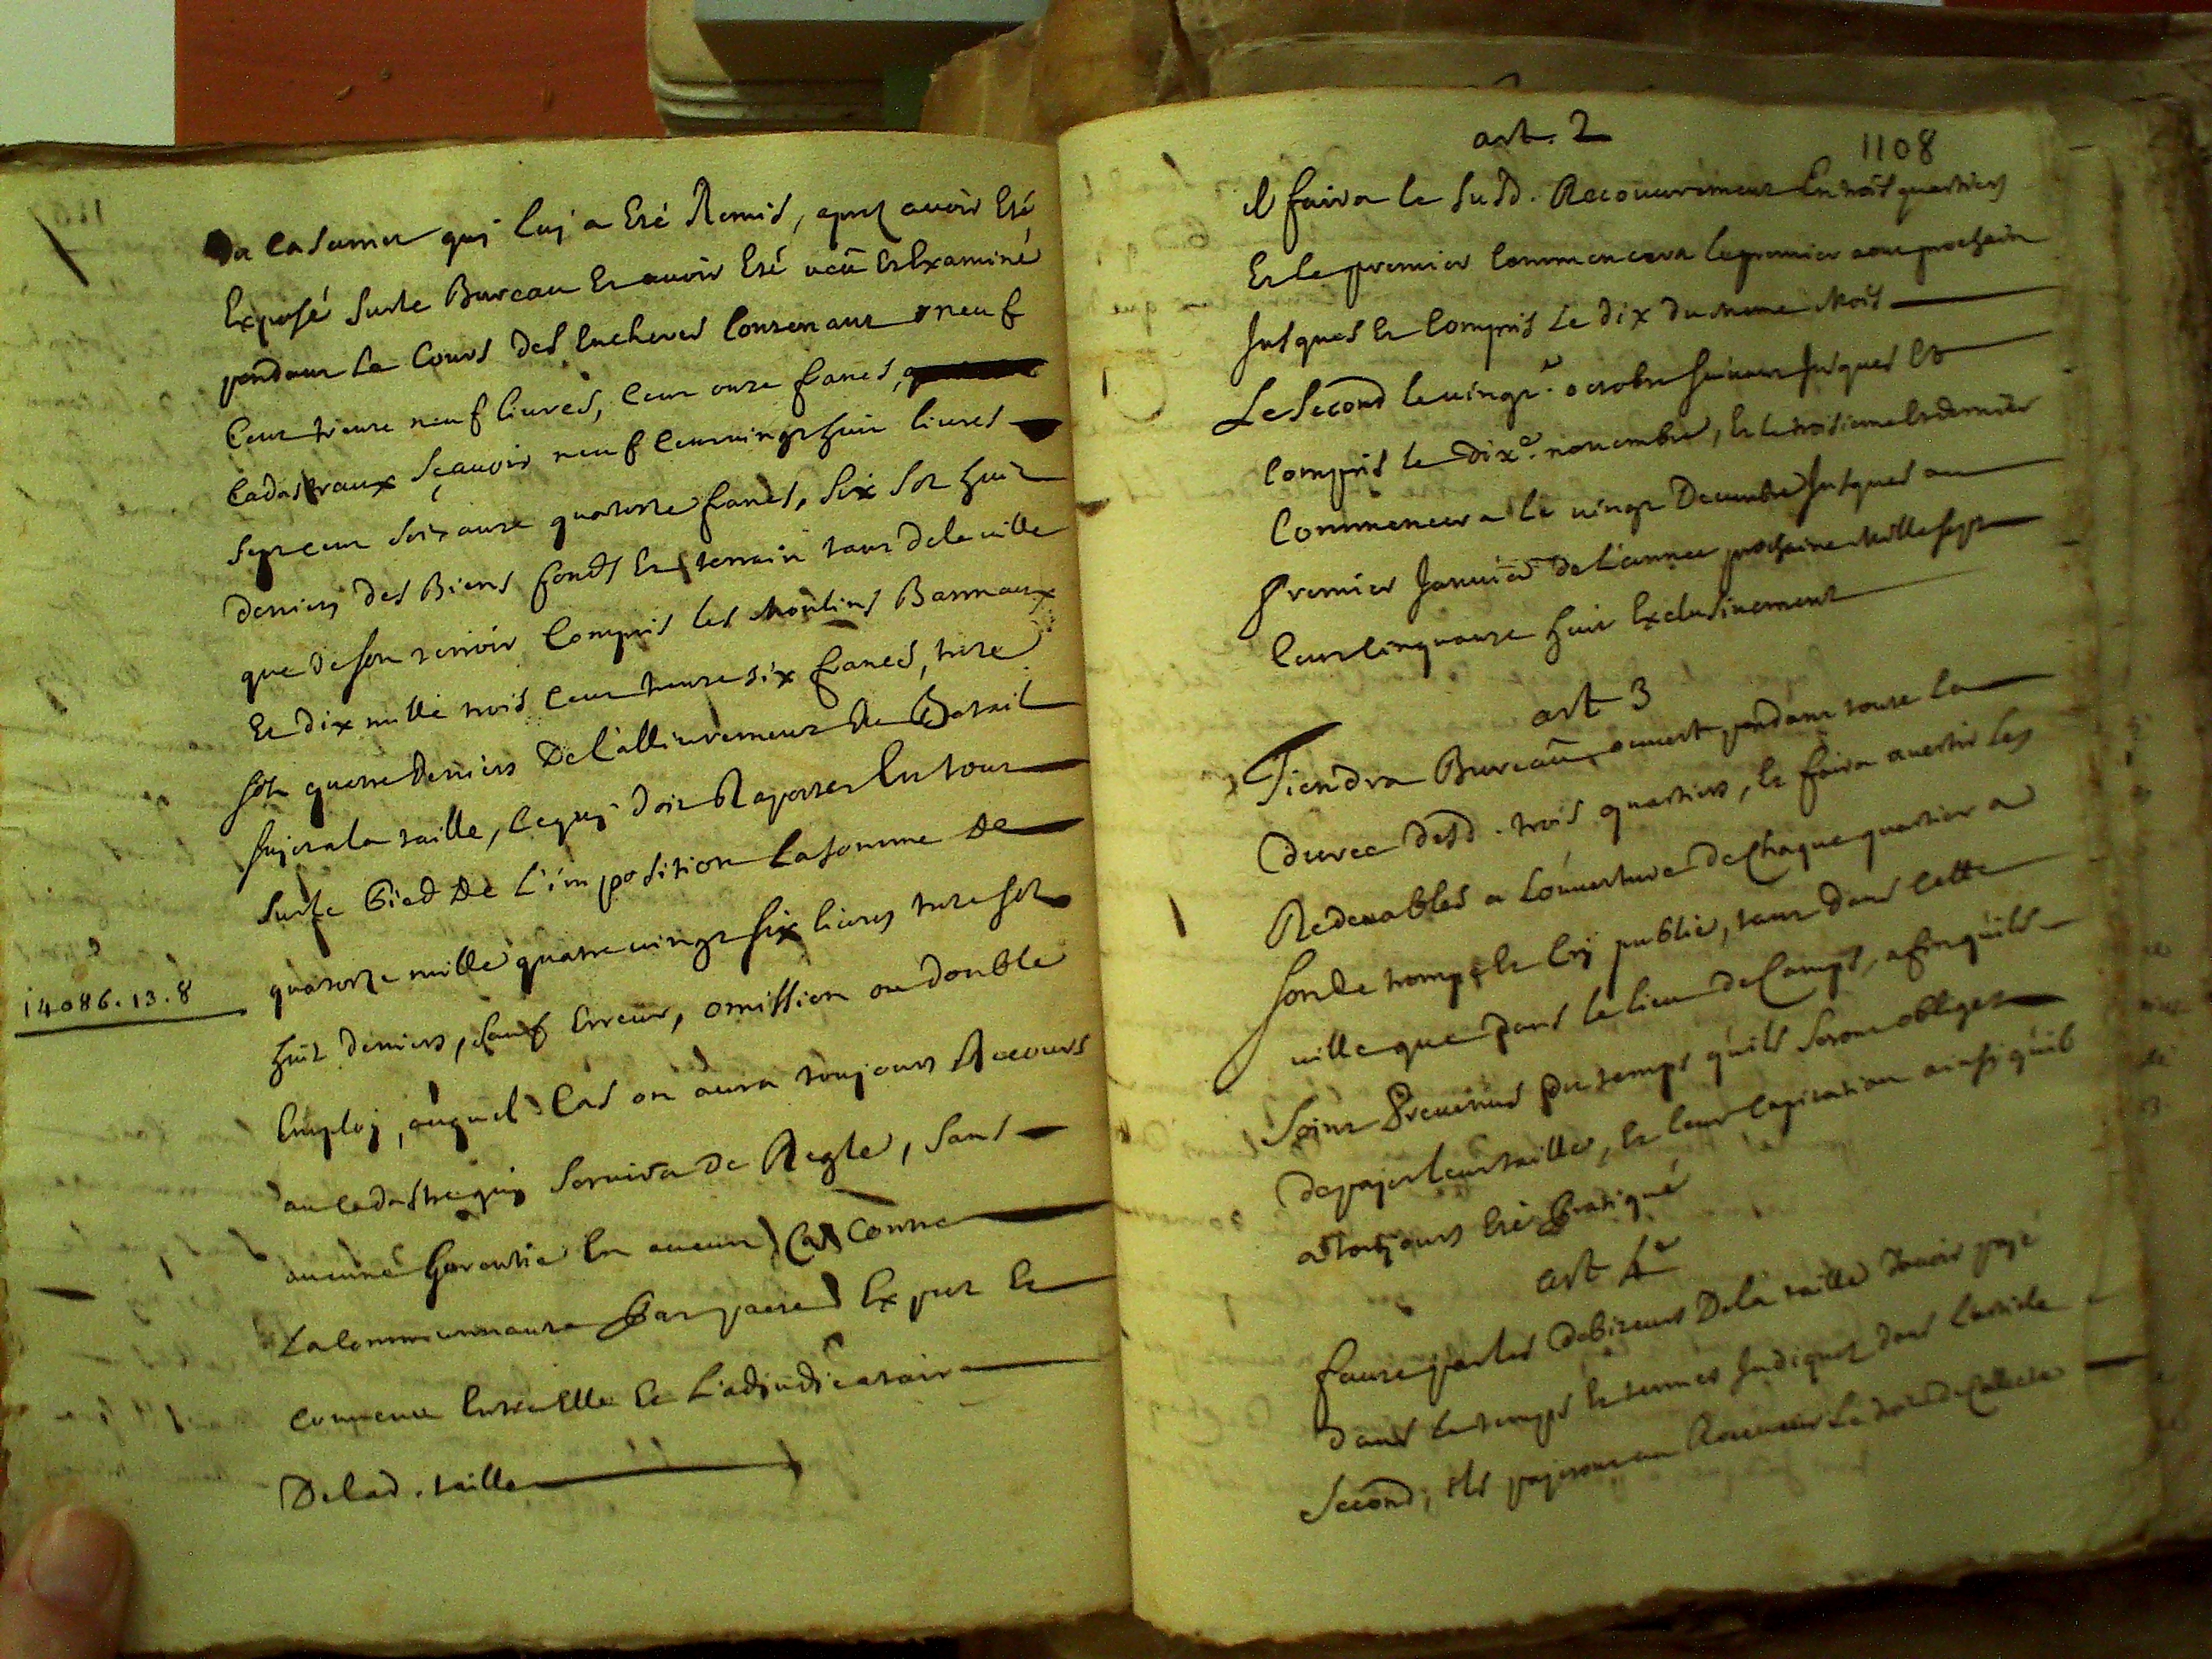 De casernet quj luj a Eté Remis, apres avoir Eté
Exposé sur le Bureau Et avoir Eté veu Et Examiné
pendant le Cours des Encheres Contenant neuf
Cent trente neuf livres, Cent onze florins,
Cadastraux sçavoir neuf Cent vingt huit livres
sept cent soixante quatorze florins, six sols huit
deniers des Biens fonds Et terrain tant de la ville
que de son terroir Compris les Moulins Bannaux
Et dix mille trois Cent trente six florins, treze
sols quatre deniers De l'allivrement du Betail
sujet a la taille, Ce quj doit Raporter En tout
sur le Pied de L'imposition La somme de
quatorze mille quatre vingt six livres treze sols
14086.13.8
huit deniers, sauf Erreur, omission ou double
Employ, auquel Cas on aura toujours Recours
au cadastre quj servira de Regle, sans
aucune Garantie En aucun Cas Contre
La Communauté Par pacte Exprez Et
Convenu Entre Elle Et L'adjudicataire
De lad. taille
art. 2
1108
Il faira le susd. Recouvrement En trois quartiers
Et le premier Commencera le premier aout prochain
Jusques Et Compris Le dix du meme Mois
Le Second le vingt.e octobre suivant Jusques Et
Compris le dix.e novembre, Et le troisieme Et dernier
Commencera Le vingt Decembre Jusques au
Premier Janvier de L'année prochaine Mille sept
Cent Cinquante huit Exclusivement
art 3
Tiendra Bureau ouvert pendant toute La
durée desd. trois quartiers, Et faira avertir Les
Redevables a L'ouverture de Chaque quartier a
son de trompe Et Crj public, tant dans Cette
ville que dans le lieu de Camps, afin qu'ils
soint Prevenus du temps qu'ils seront obliges
de pajer leur taille, Et leur Capitation ainsi qu'il
a toujours Eté Pratiqué
art 4e
faute par les debiteurs De la taille d'avoir payé
dans Le temps Et termes Indiquez dans L'article
Second, ils pajeront au Le droit de Collecte